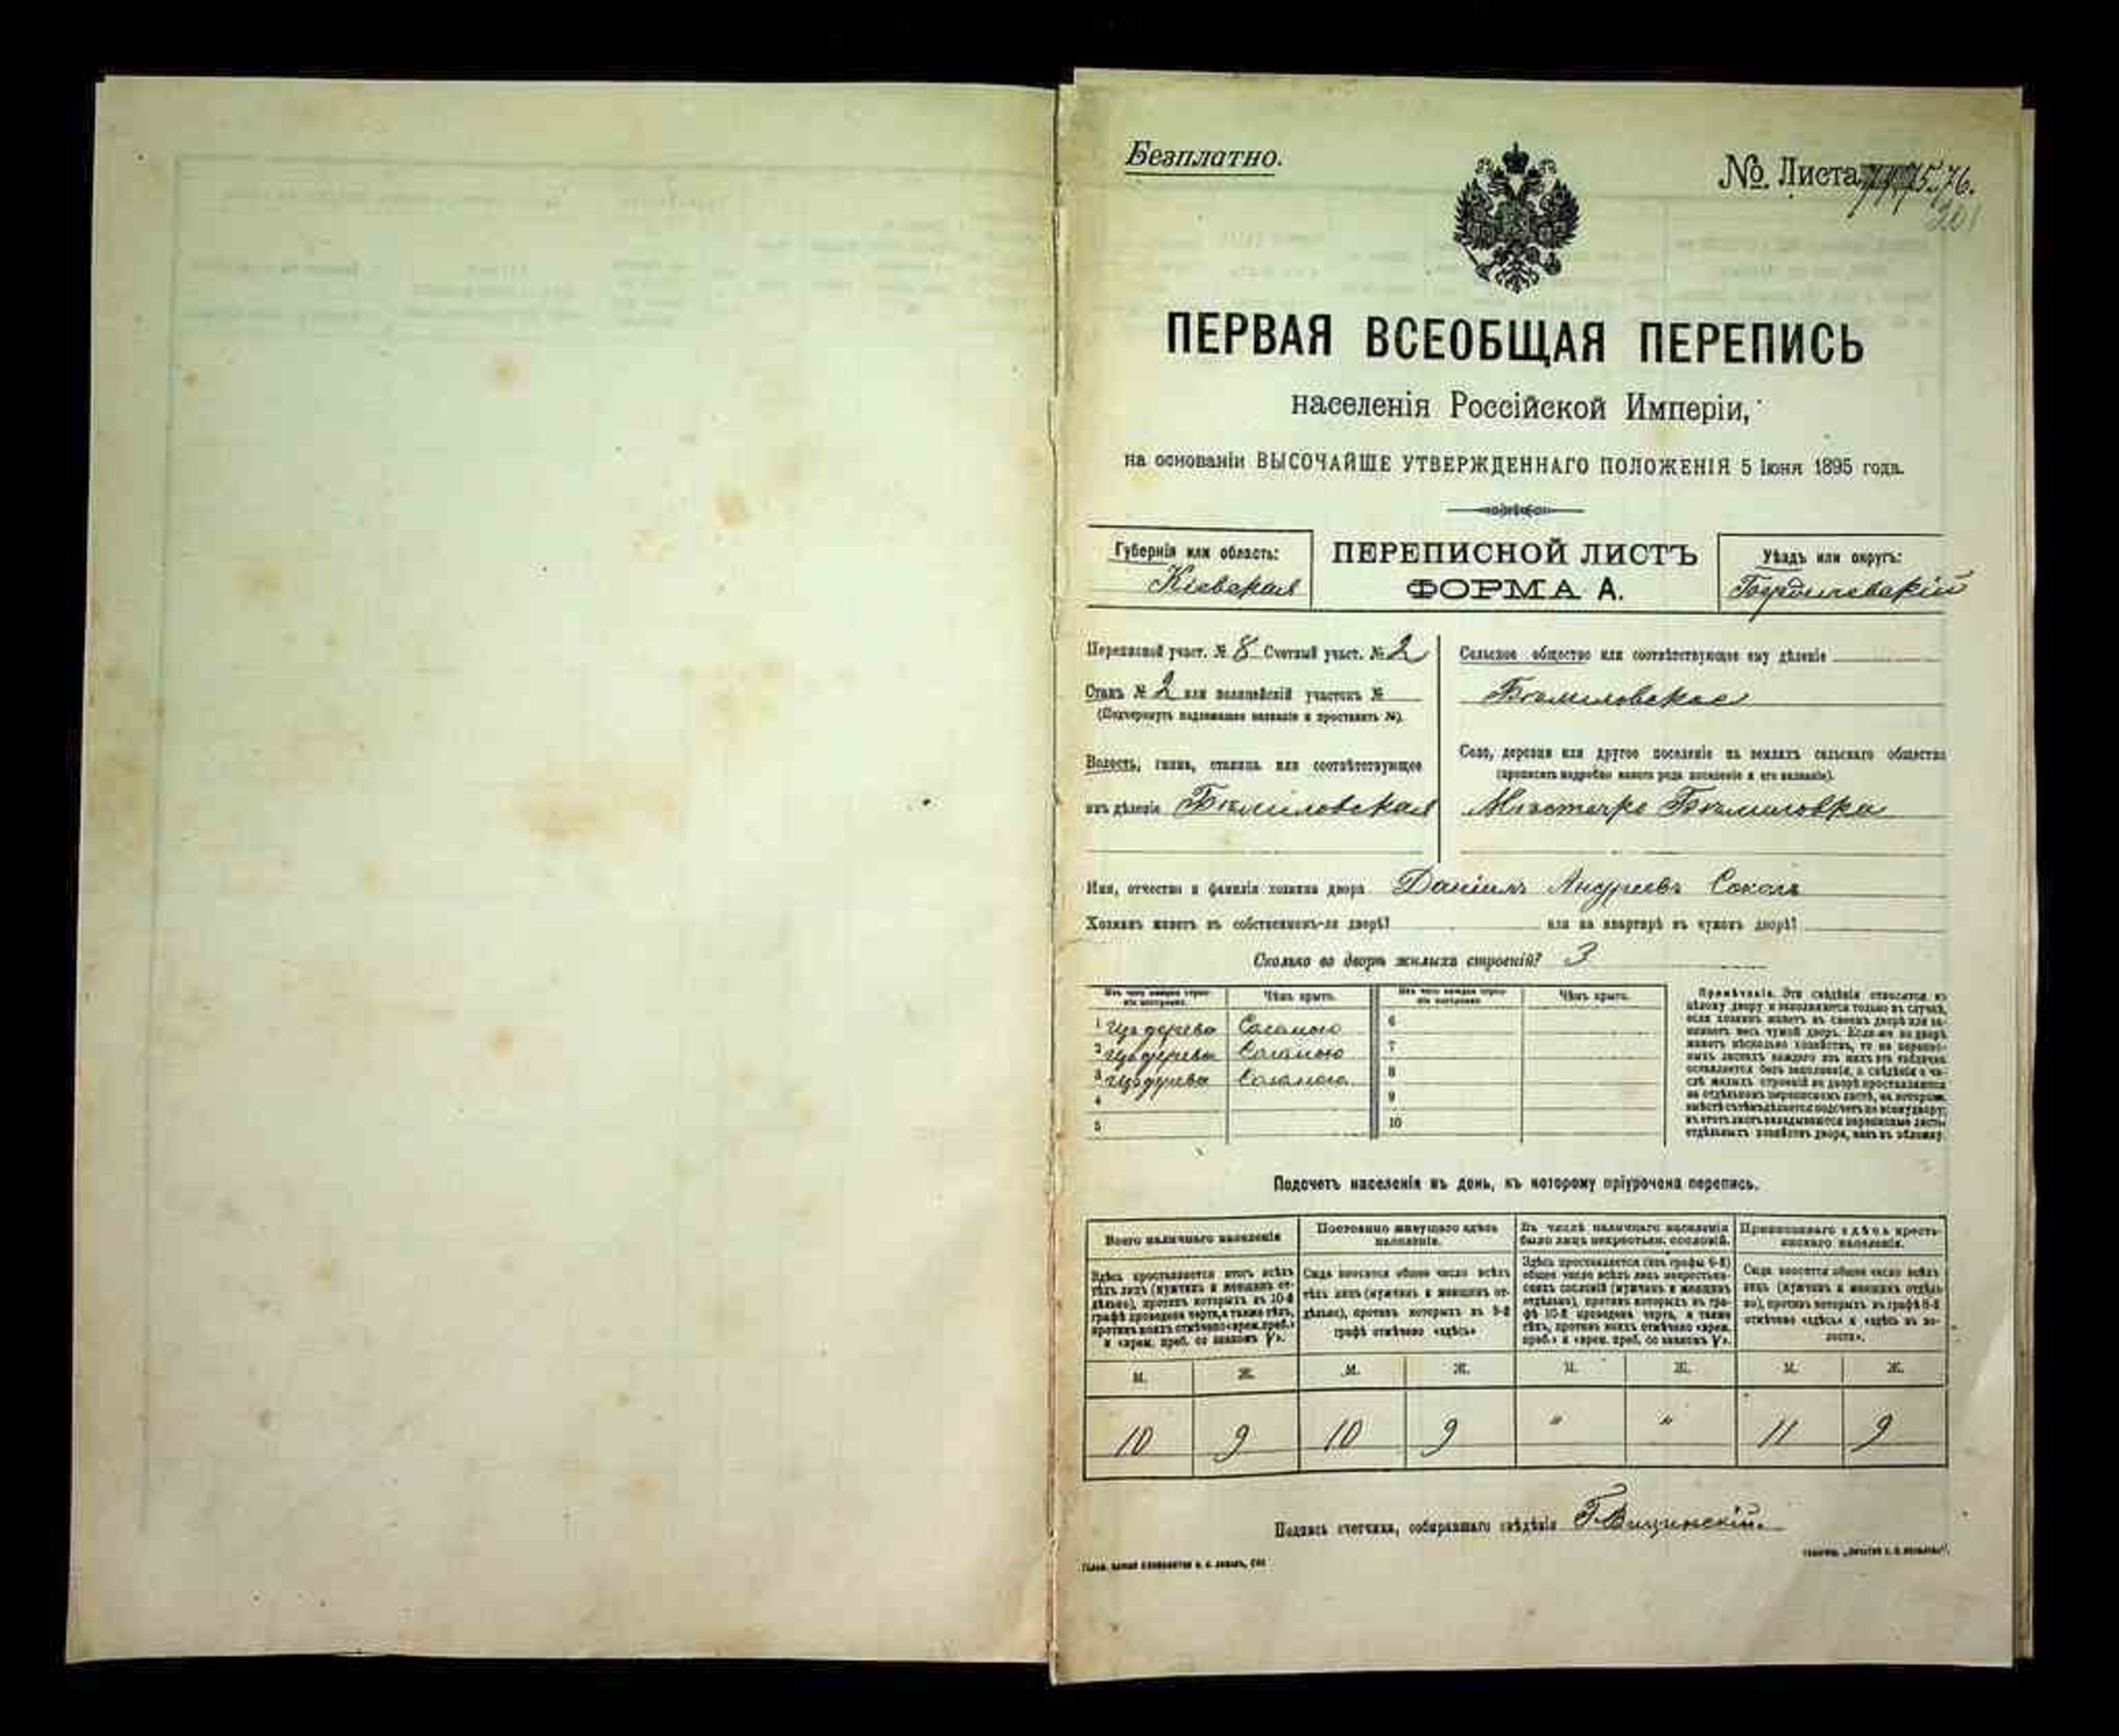 Безплатно.
№ Листа 76.
201
ПЕРВАЯ ВСЕОБЩАЯ ПЕРЕПИСЬ
населенія Россійской Имперіи,
на основаніи ВЫСОЧАЙШЕ УТВЕРЖДЕННАГО ПОЛОЖЕНІЯ 5 Іюня 1895 года.
Губернія или область:
Кіевская
ПЕРЕПИСНОЙ ЛИСТЪ
ФОРМА А.
Уѣздъ или округъ:
Бердичевскій
Переписной участ. № 8 Счетный участ. № 2
Станъ № 2 или полицейскій участокъ №
(Подчеркнуть надлежащее названіе и проставить №).
Волость, гмина, станица или соотвѣтствующее
имъ дѣленіе Бѣлиловская
Сельское общество или соотвѣтствующее ему дѣленіе
Бѣлиловское
Село, деревня или другое поселеніе на земляхъ сельскаго общества
(прописать подробно какого рода поселеніе и его названіе).
Мѣстечко Бѣлиловка
Имя, отчество и фамилія хозяина двора Даніилъ Андреевъ Соколъ
Хозяинъ живетъ въ собственномъ-ли дворѣ? или на квартирѣ въ чужомъ дворѣ?
Сколько во дворѣ жилыхъ строеній? 3
Изъ чего каждое строеніе построено. Чѣмъ крыто. Изъ чего каждое строеніе построено. Чѣмъ крыто.
1 Изъ дерева Соломою 6
2 Изъ дерева Соломою 7
3 Изъ дерева Соломою 8
4 9
5 10
Примѣчаніе. Эти свѣдѣнія относятся къ
цѣлому двору и заполняются только въ случаѣ,
если хозяинъ живетъ въ своемъ дворѣ или занимаетъ
весь чужой дворъ. Если-же во дворѣ
живетъ нѣсколько хозяйствъ, то на переписныхъ
листахъ каждаго изъ нихъ эта табличка
оставляется безъ заполненія, а свѣдѣнія о числѣ
жилыхъ строеній во дворѣ проставляются
на отдѣльномъ переписномъ листѣ, на которомъ
вмѣстѣ съ тѣмъ дѣлается подсчетъ по всему двору;
въ этотъ листъ вкладываются переписные листы
отдѣльныхъ хозяйствъ двора, какъ въ обложку.
Подсчетъ населенія въ день, къ которому пріурочена перепись.
Всего наличнаго населенія
Здѣсь проставляется итогъ всѣхъ
тѣхъ лицъ (мужчинъ и женщинъ отдѣльно),
противъ которыхъ въ 10-й
графѣ проведена черта, а также тѣхъ,
противъ коихъ отмѣчено «врем. преб.»
и «врем. преб. со знакомъ V».
Постоянно живущаго здѣсь
населенія.
Сюда вносится общее число всѣхъ
тѣхъ лицъ (мужчинъ и женщинъ отдѣльно),
противъ которыхъ въ 9-й
графѣ отмѣчено «здѣсь»
Въ числѣ наличнаго населенія
было лицъ некрестьян. сословій.
Здѣсь проставляется (изъ графы 6-й)
общее число всѣхъ лицъ некрестьянскихъ
сословій (мужчинъ и женщинъ
отдѣльно), противъ которыхъ въ графѣ
10-й проведена черта, а также
тѣхъ, противъ коихъ отмѣчено «врем.
преб.» и «врем. преб. со знакомъ V».
Приписаннаго здѣсь крестьянскаго
населенія.
Сюда вносится общее число всѣхъ
лицъ (мужчинъ и женщинъ отдѣльно),
противъ которыхъ въ графѣ 8-й
отмѣчено «здѣсь» и «здѣсь въ волости».
М. Ж. М. Ж. М. Ж. М. Ж.
10 9 10 9 " " 11 9
Подпись счетчика, собиравшаго свѣдѣнія